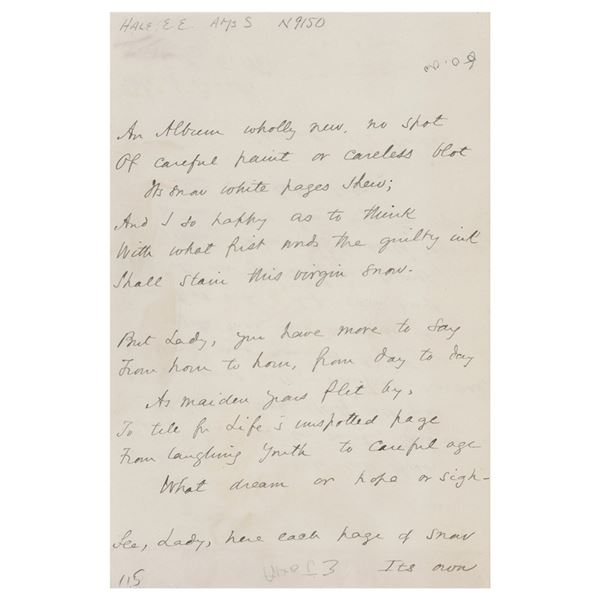 HALE, E.E. AMS S N9150
An Album wholly new, no spot
Of careful paint or careless blot
Its snow white pages shew;
And I so happy as to think
With what first words the guilty ink
Shall stain this virgin snow.
But Lady, you have more to say
From hour to hour, from day to day
As maiden years flit by,
To tell for Life's unspotted page
From laughing Youth to careful age
What dream or hope or sigh—
See, Lady, here each page of snow
Its own
115